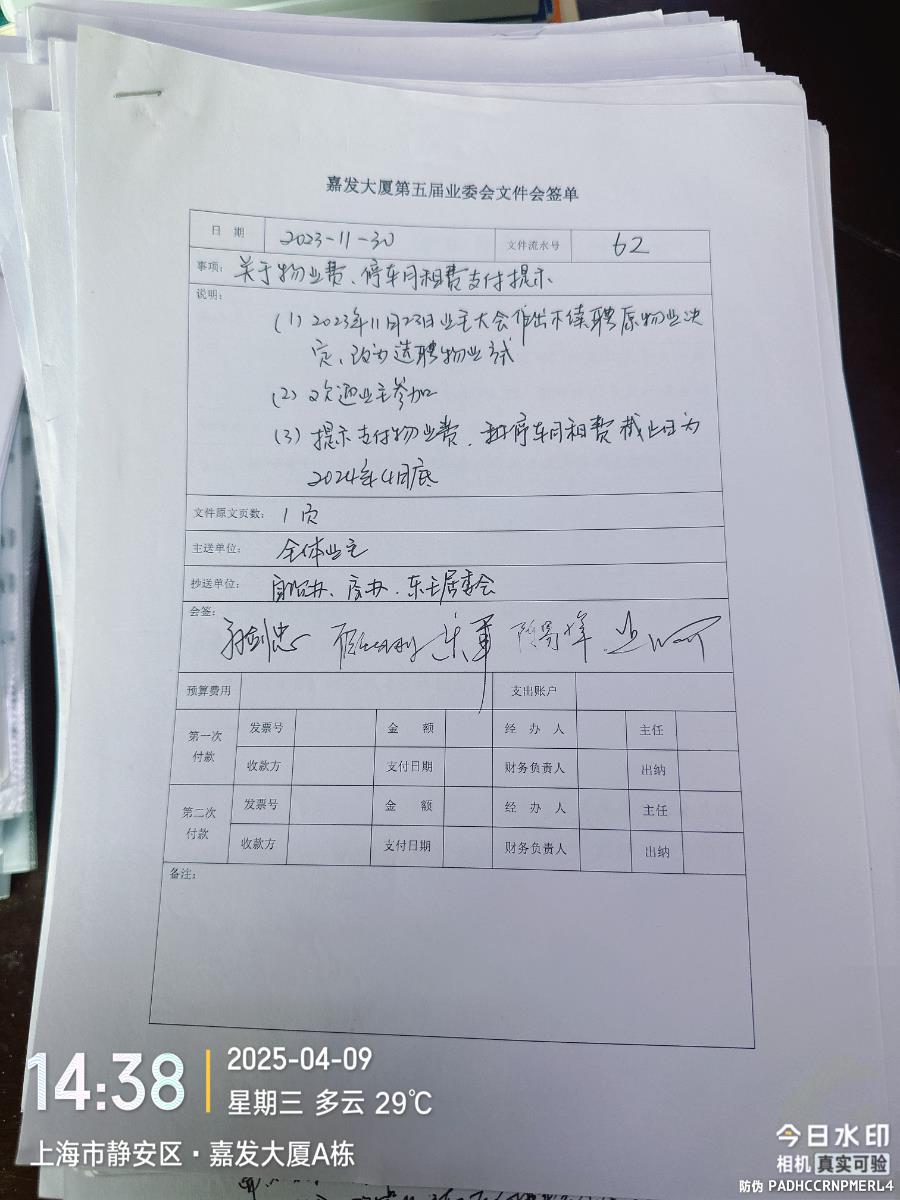 嘉发大厦第五届业委会文件会签单
日 期 2023-11-30 文件流水号 62
事项: 关于物业费、停车月租费支付提示
说明:
(1) 2023年11月23日业主大会作出不续聘原物业决
定、改为选聘物业
(2) 欢迎业主参加
(3) 提示支付物业费、停车月租费截止日为
2024年4月底
文件原文页数: 1页
主送单位: 全体业主
抄送单位: 房办、东王居委会
会签:
预算费用 支出账户
第一次付款 发票号 金 额 经 办 人 主任
收款方 支付日期 财务负责人 出纳
第二次付款 发票号 金 额 经 办 人 主任
收款方 支付日期 财务负责人 出纳
备注:
14:38 2025-04-09
星期三 多云 29℃
上海市静安区·嘉发大厦A栋
今日水印
相机 真实可验
防伪 PADHCCRNPMERL4